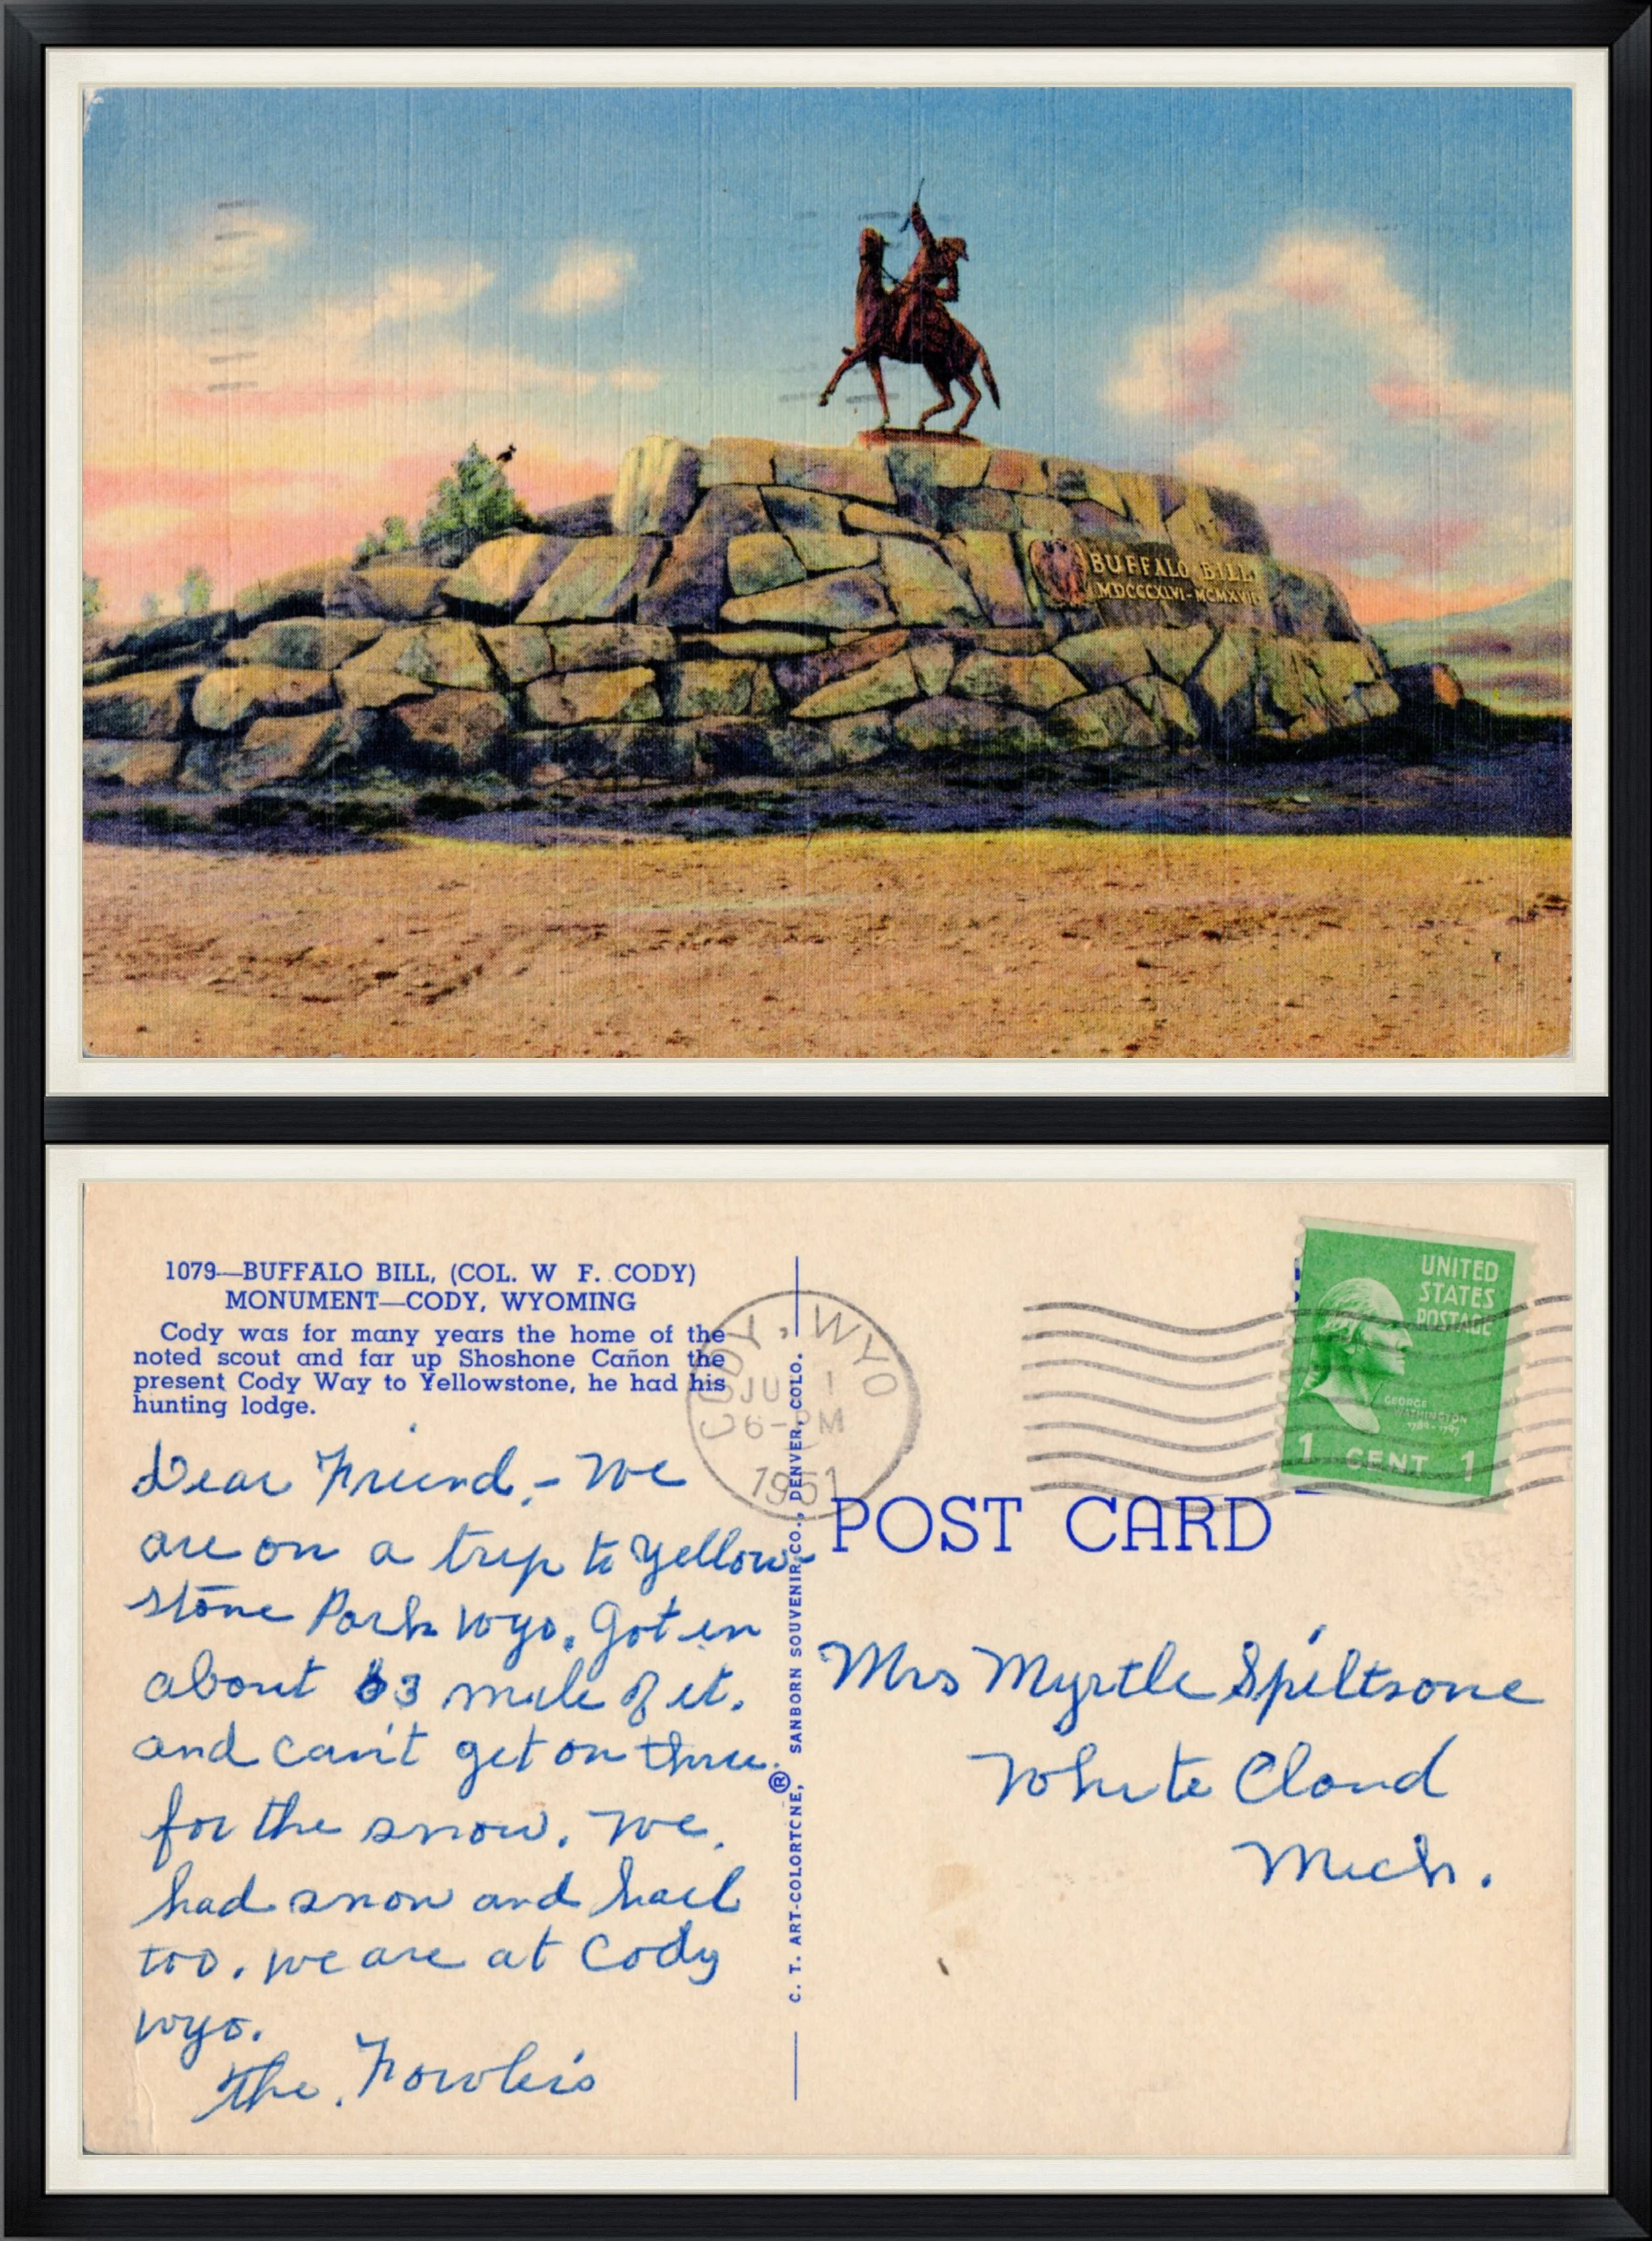 BUFFALO BILL
MDCCCXLVI-MCMXVII
1079—BUFFALO BILL, (COL. W F. CODY)
MONUMENT—CODY, WYOMING
Cody was for many years the home of the
noted scout and far up Shoshone Cañon the
present Cody Way to Yellowstone, he had his
hunting lodge.
Dear Friend,- We
are on a trip to Yellow-
stone Park Wyo. Got in
about 63 mile of it.
and can't get on thru
for the snow. We
had snow and hail
too. We are at Cody
Wyo.
The Fowler's
C. T. ART-COLORTONE, ® SANBORN SOUVENIR CO., DENVER, COLO.
CODY, WYO
1
6-PM
1951
UNITED
STATES
POSTAGE
GEORGE
WASHINGTON
1789-1797
1 CENT 1
POST CARD
Mrs Myrtle Spiltsone
White Cloud
Mich.